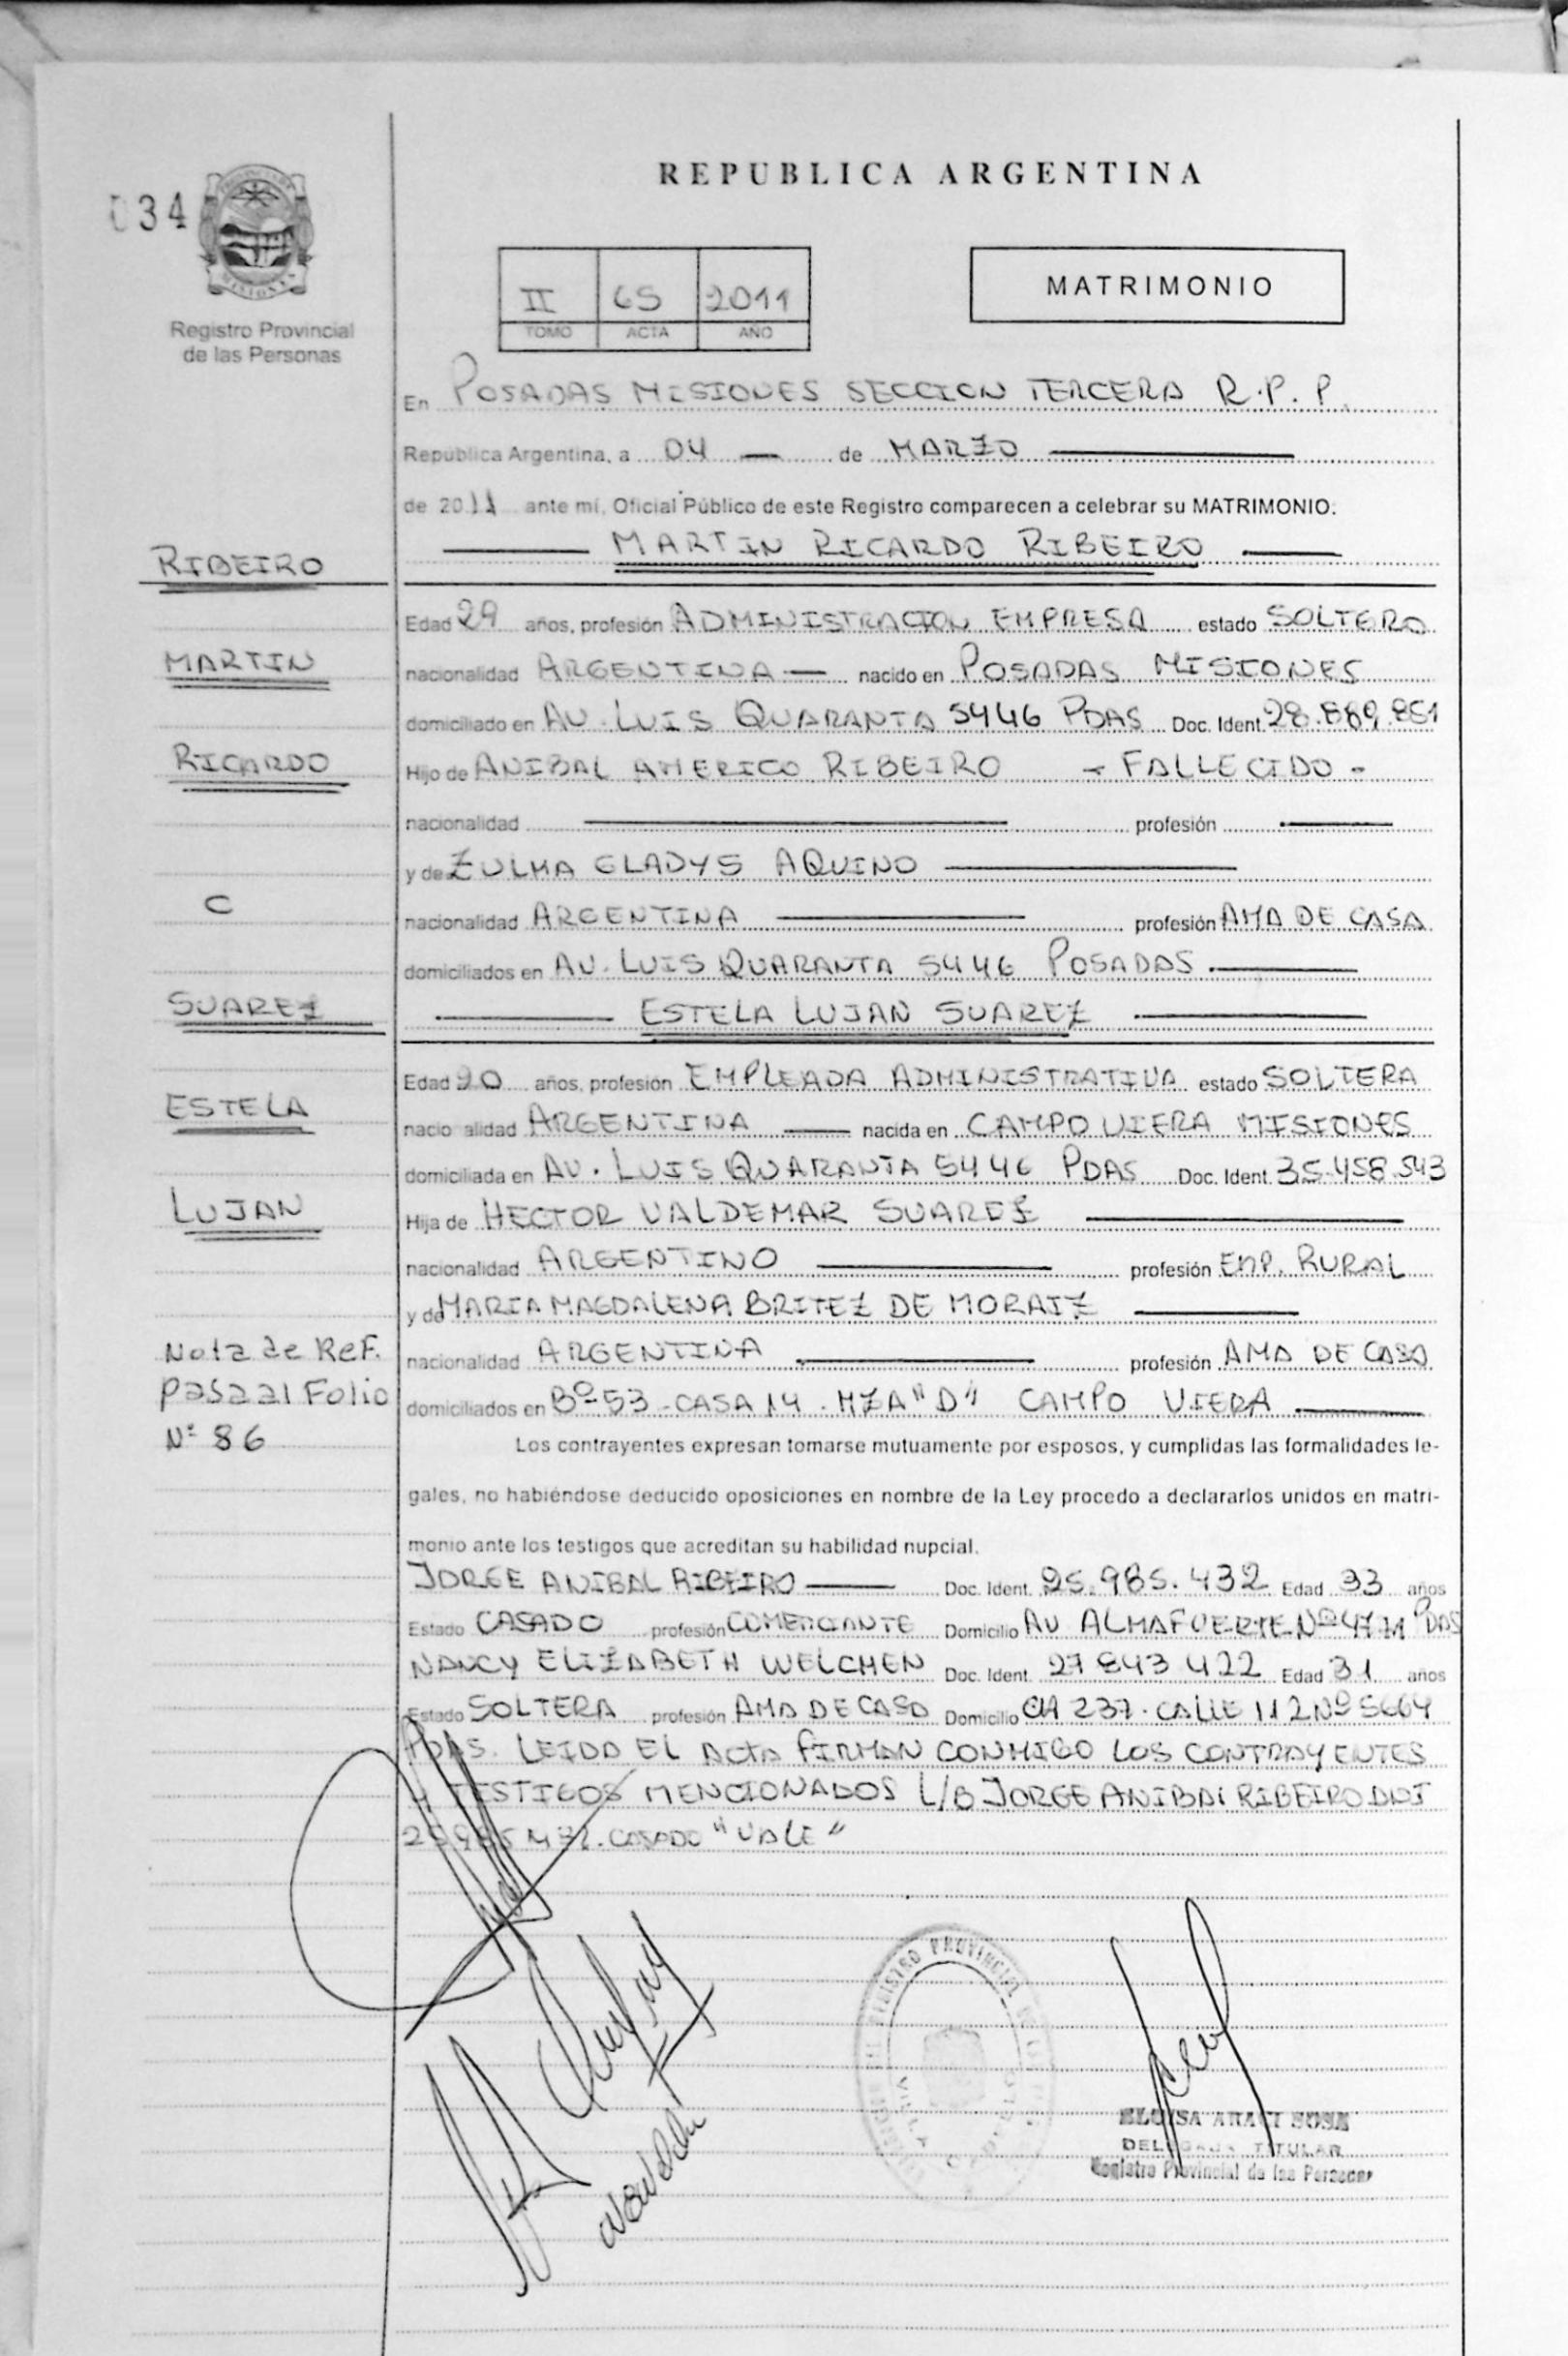 034
REPUBLICA ARGENTINA
MATRIMONIO
II 65 2011
TOMO ACTA AÑO
Registro Provincial
de las Personas
En POSADAS MISIONES SECCION TERCERA R.P.P.
Republica Argentina, a 04 — de MARZO
de 2011 ante mí, Oficial Público de este Registro comparecen a celebrar su MATRIMONIO.
MARTIN RICARDO RIBEIRO
RIBEIRO
Edad 29 años, profesión ADMINISTRACION EMPRESA estado SOLTERO
MARTIN
nacionalidad ARGENTINA — nacido en POSADAS MISIONES
domiciliado en AV. LUIS QUARANTA 5446 PDAS Doc. Ident. 28.889.851
RICARDO
Hijo de ANIBAL AMERICO RIBEIRO - FALLECIDO -
nacionalidad profesión
y de ZULMA GLADYS AQUINO
C
nacionalidad ARGENTINA profesión AMA DE CASA
domiciliados en AV. LUIS QUARANTA 5446 POSADAS
SUAREZ
ESTELA LUJAN SUAREZ
Edad 20 años, profesión EMPLEADA ADMINISTRATIVA estado SOLTERA
ESTELA
nacionalidad ARGENTINA — nacida en CAMPO VIERA MISIONES
domiciliada en AV. LUIS QUARANTA 5446 PDAS Doc. Ident. 35.458.543
LUJAN
Hija de HECTOR VALDEMAR SUAREZ
nacionalidad ARGENTINO profesión EMP. RURAL
y de MARIA MAGDALENA BRITEZ DE MORAIZ
Nota de Ref.
nacionalidad ARGENTINA profesión AMA DE CASA
pasa al Folio
domiciliados en Bº 53 - CASA 14 . MZA "D" CAMPO VIERA
Nº 86
Los contrayentes expresan tomarse mutuamente por esposos, y cumplidas las formalidades le-
gales, no habiéndose deducido oposiciones en nombre de la Ley procedo a declararlos unidos en matri-
monio ante los testigos que acreditan su habilidad nupcial.
JORGE ANIBAL RIBEIRO Doc. Ident. 25.985.432 Edad 33 años
Estado CASADO profesión COMERCIANTE Domicilio AV ALMAFUERTE Nº 4771 PDAS
NANCY ELIZABETH WELCHEN Doc. Ident. 27 843 422 Edad 31 años
Estado SOLTERA profesión AMA DE CASA Domicilio CH 237. CALLE 112 Nº 5664
PDAS. LEIDA EL ACTA FIRMAN CONMIGO LOS CONTRAYENTES
Y TESTIGOS MENCIONADOS L/B JORGE ANIBAL RIBEIRO DNI
25985432. CASADO "VALE"
REGISTRO PROVINCIAL DE
SOSA
DELEGADA TITULAR
Registro Provincial de las Personas